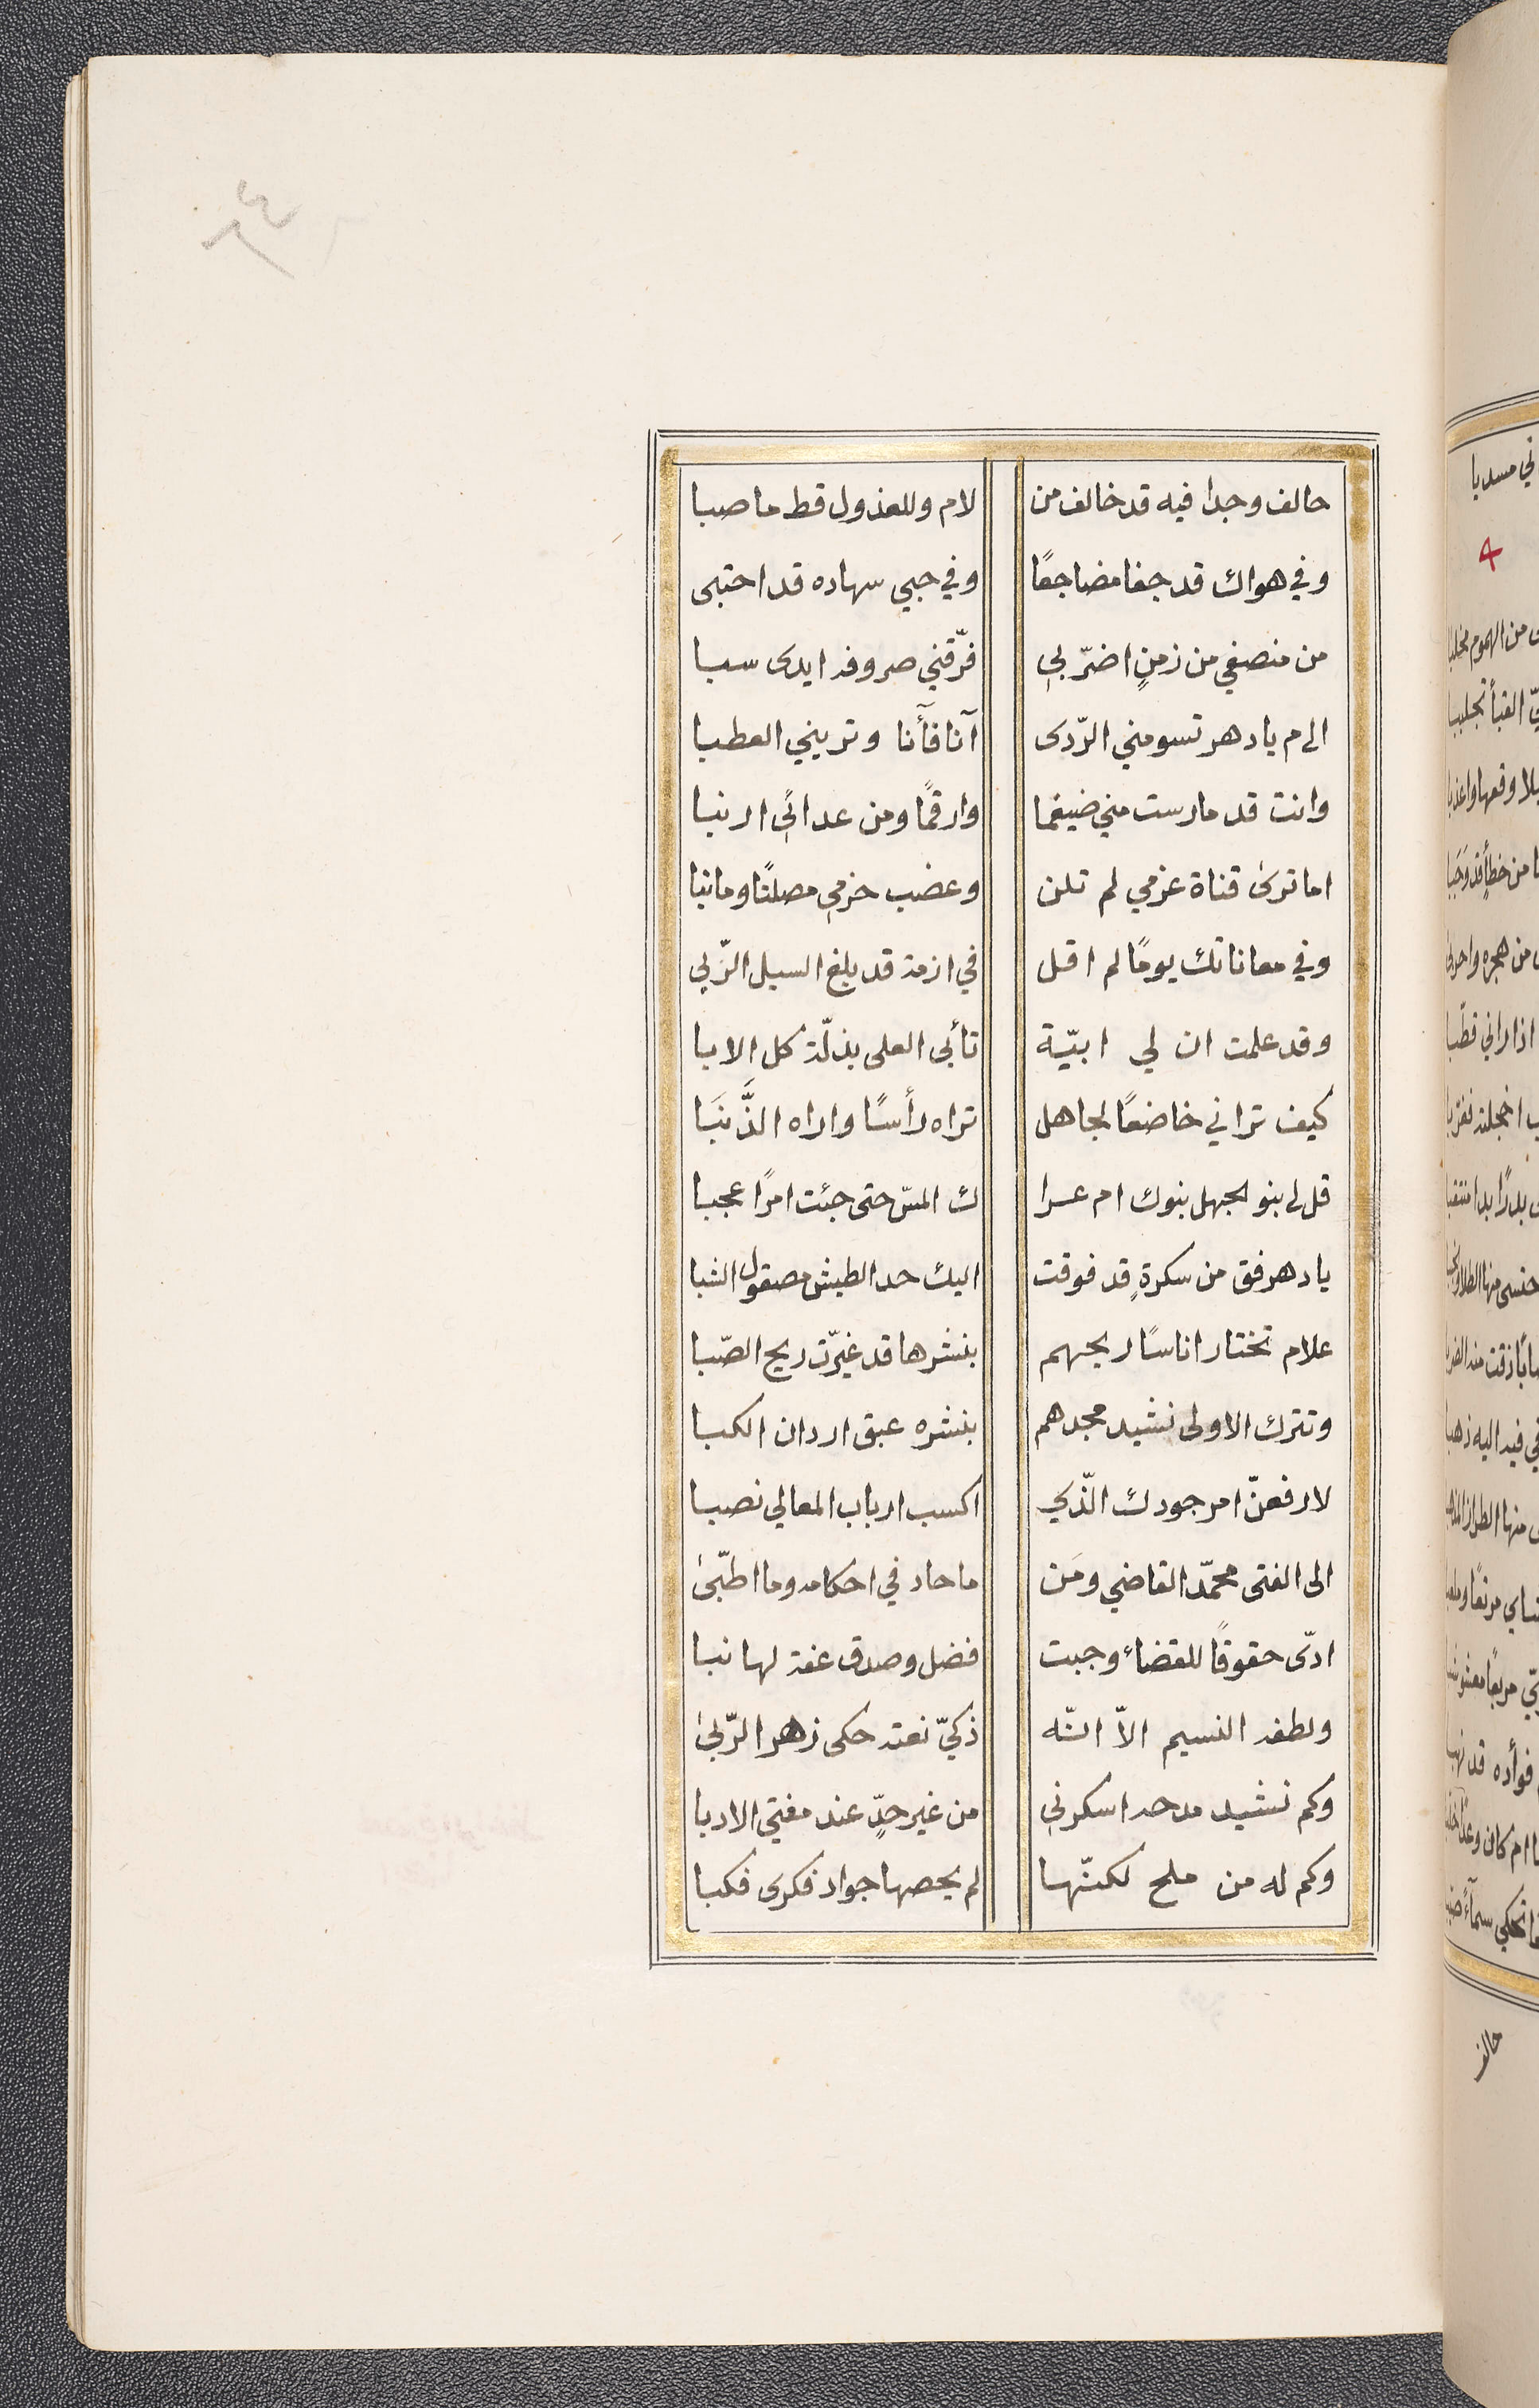 حالف وجدا فيه قد خالف من لام وللعذول قط ما صبا
وفي هواك قد جفا مضاجعًا وفي حبي سهاده قد احتبى
من منصفي من زمنٍ اضرّ بي فرّقني صروفه ايدى سبا
الى م يا دهر تسومني الرّدى آنا فآنا وتريني العطبا
وانت قد مارست مني ضيغما وارقمًا ومن عدائي ارنبا
اما ترى قناة عزمي لم تلن وعضب حزمي مصلتًا وما نبا
وفي معاناتك يومًا لم اقل في ازمة قد بلغ السيل الزّبى
وقد علمت ان لي ابيّة تأبى العلى بذلّة كل الابا
كيف تراني خاضعًا لجاهل تراه رأسًا واراه الذَّنَبَا
قل لي بنو الجهل بنوك ام عرا ك المسّ حتى جئت امرًا عجبا
يا دهر فق من سكرةٍ قد فوقت اليك حد الطيش مصقول الشبا
علام تختار اناسًا ريحهم بنشرها قد غيّرت ريح الصّبا
وتترك الاولى نشيد مجدهم بنشره عبق اردان الكبا
لارفعنّ امر جودك الّذي اكسب ارباب المعالي نصبا
الى الفتى محمّد القاضي ومَن ما حاد في احكامه وما اطّبىٰ
ادّى حقوقًا للقضاء وجبت فضل وصدق عفة لها نبا
ولطفه النسيم الاّ انّه ذكيّ نعته حكى زهر الرّبىٰ
وكم نشيد مدحه اسكرني من غير حدٍّ عند مفتي الادبا
وكم له من ملح لكنّها لم يحصها جواد فكرى فكبا
حالف